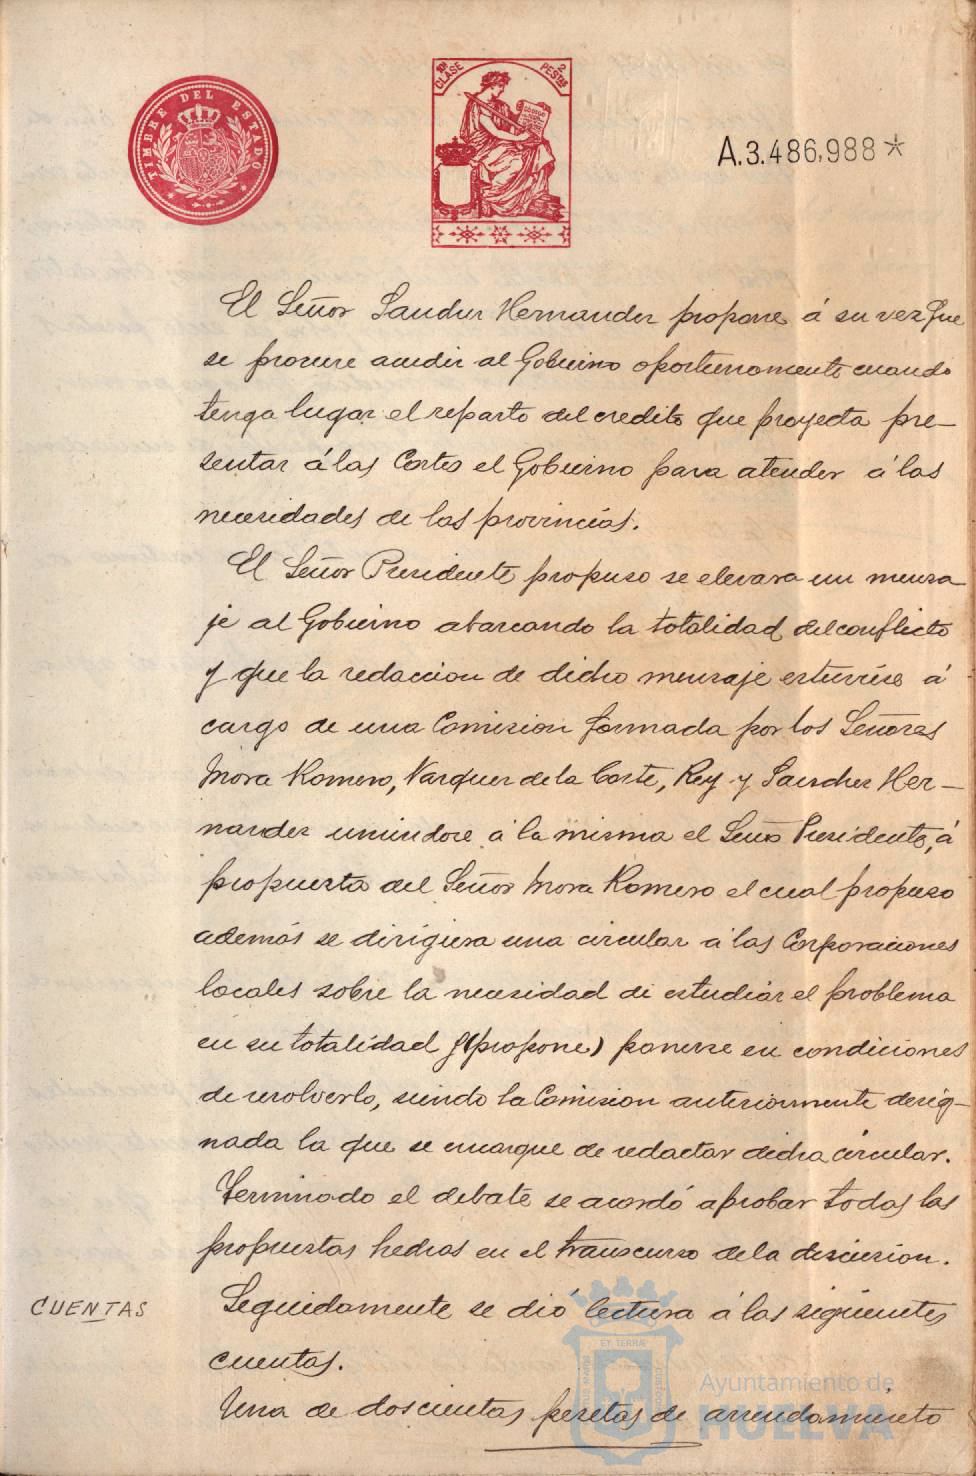 TIMBRE DEL ESTADO
10ª CLASE 2 PESTAS
A.3.486,988*
El Señor Sanchez Hernandez propone á su vez que
se procure acudir al Gobierno oportunamente cuando
tenga lugar el reparto del credito que proyecta pre-
sentar á las Cortes el Gobierno para atender á las
necesidades de las provincias.
El Señor Presidente propuso se elevara un mensa
je al Gobierno abarcando la totalidad del conflicto
y que la redaccion de dicho mensaje estuviese á
cargo de una Comision formada por los Señores
Mora Romero, Vazquez de la Corte, Rey y Sanchez Her-
nandez uniendose á la misma el Señor Presidente, á
propuesta del Señor Mora Romero el cual propuso
además se dirigiera una circular á las Corporaciones
locales sobre la necesidad de estudiar el problema
en su totalidad y (propone) ponerse en condiciones
de resolverlo, siendo la Comision anteriormente desig-
nada la que se encargue de redactar dicha circular.
Terminado el debate se acordó aprobar todas las
propuestas hechas en el transcurso de la discusion.
CUENTAS
Seguidamente se dió lectura á las siguientes
cuentas.
Una de doscientas pesetas de arrendamiento
ET TERRAE
Ayuntamiento de
HUELVA